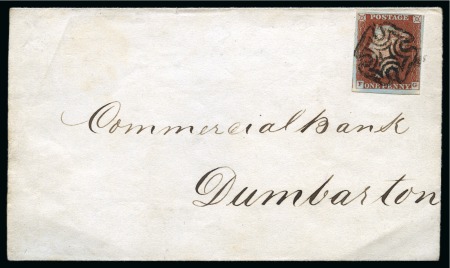 POSTAGE
ONE PENNY
Commercial Bank
Dumbarton